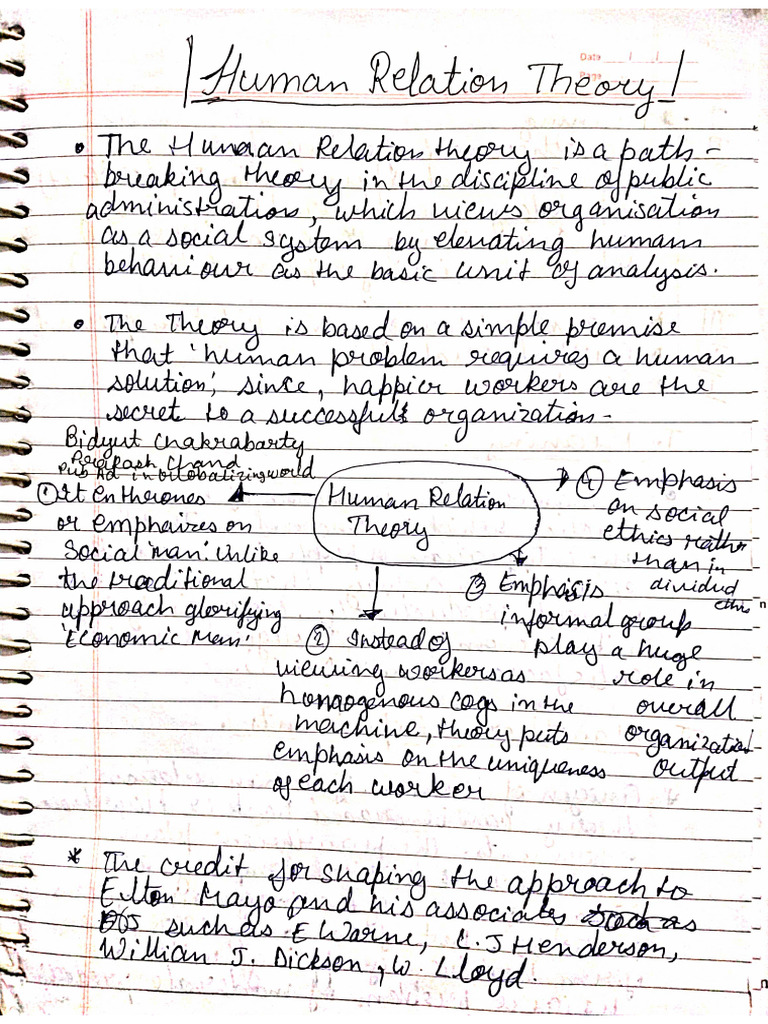 Date
Human Relation Theory
• The Human Relation theory is a path-
breaking theory in the discipline of public
administration, which views organisation
as a social system by elevating human
behaviour as the basic unit of analysis.
• The Theory is based on a simple premise
that 'human problem requires a human
solution', since, happier workers are the
secret to a successful organization-
Bidyut Chakrabarty
Prakash Chand
Pub Ad in Globalizing world
① It enthrones
or emphaizes on
Social 'man' unlike
the traditional
approach glorifying
'Economic Man'
Human Relation
Theory
② Instead of
viewing workers as
homogenous cogs in the
machine, theory puts
emphasis on the uniqueness
of each worker
③ Emphasis
informal group
play a huge
role in
overall
organization
output
④ Emphasis
on social
ethics rather
than in
dividual
ethic
* The credit for shaping the approach to
Elton Mayo and his associates
such as E Warne, L.J Henderson,
William J. Dickson, W. Lloyd.